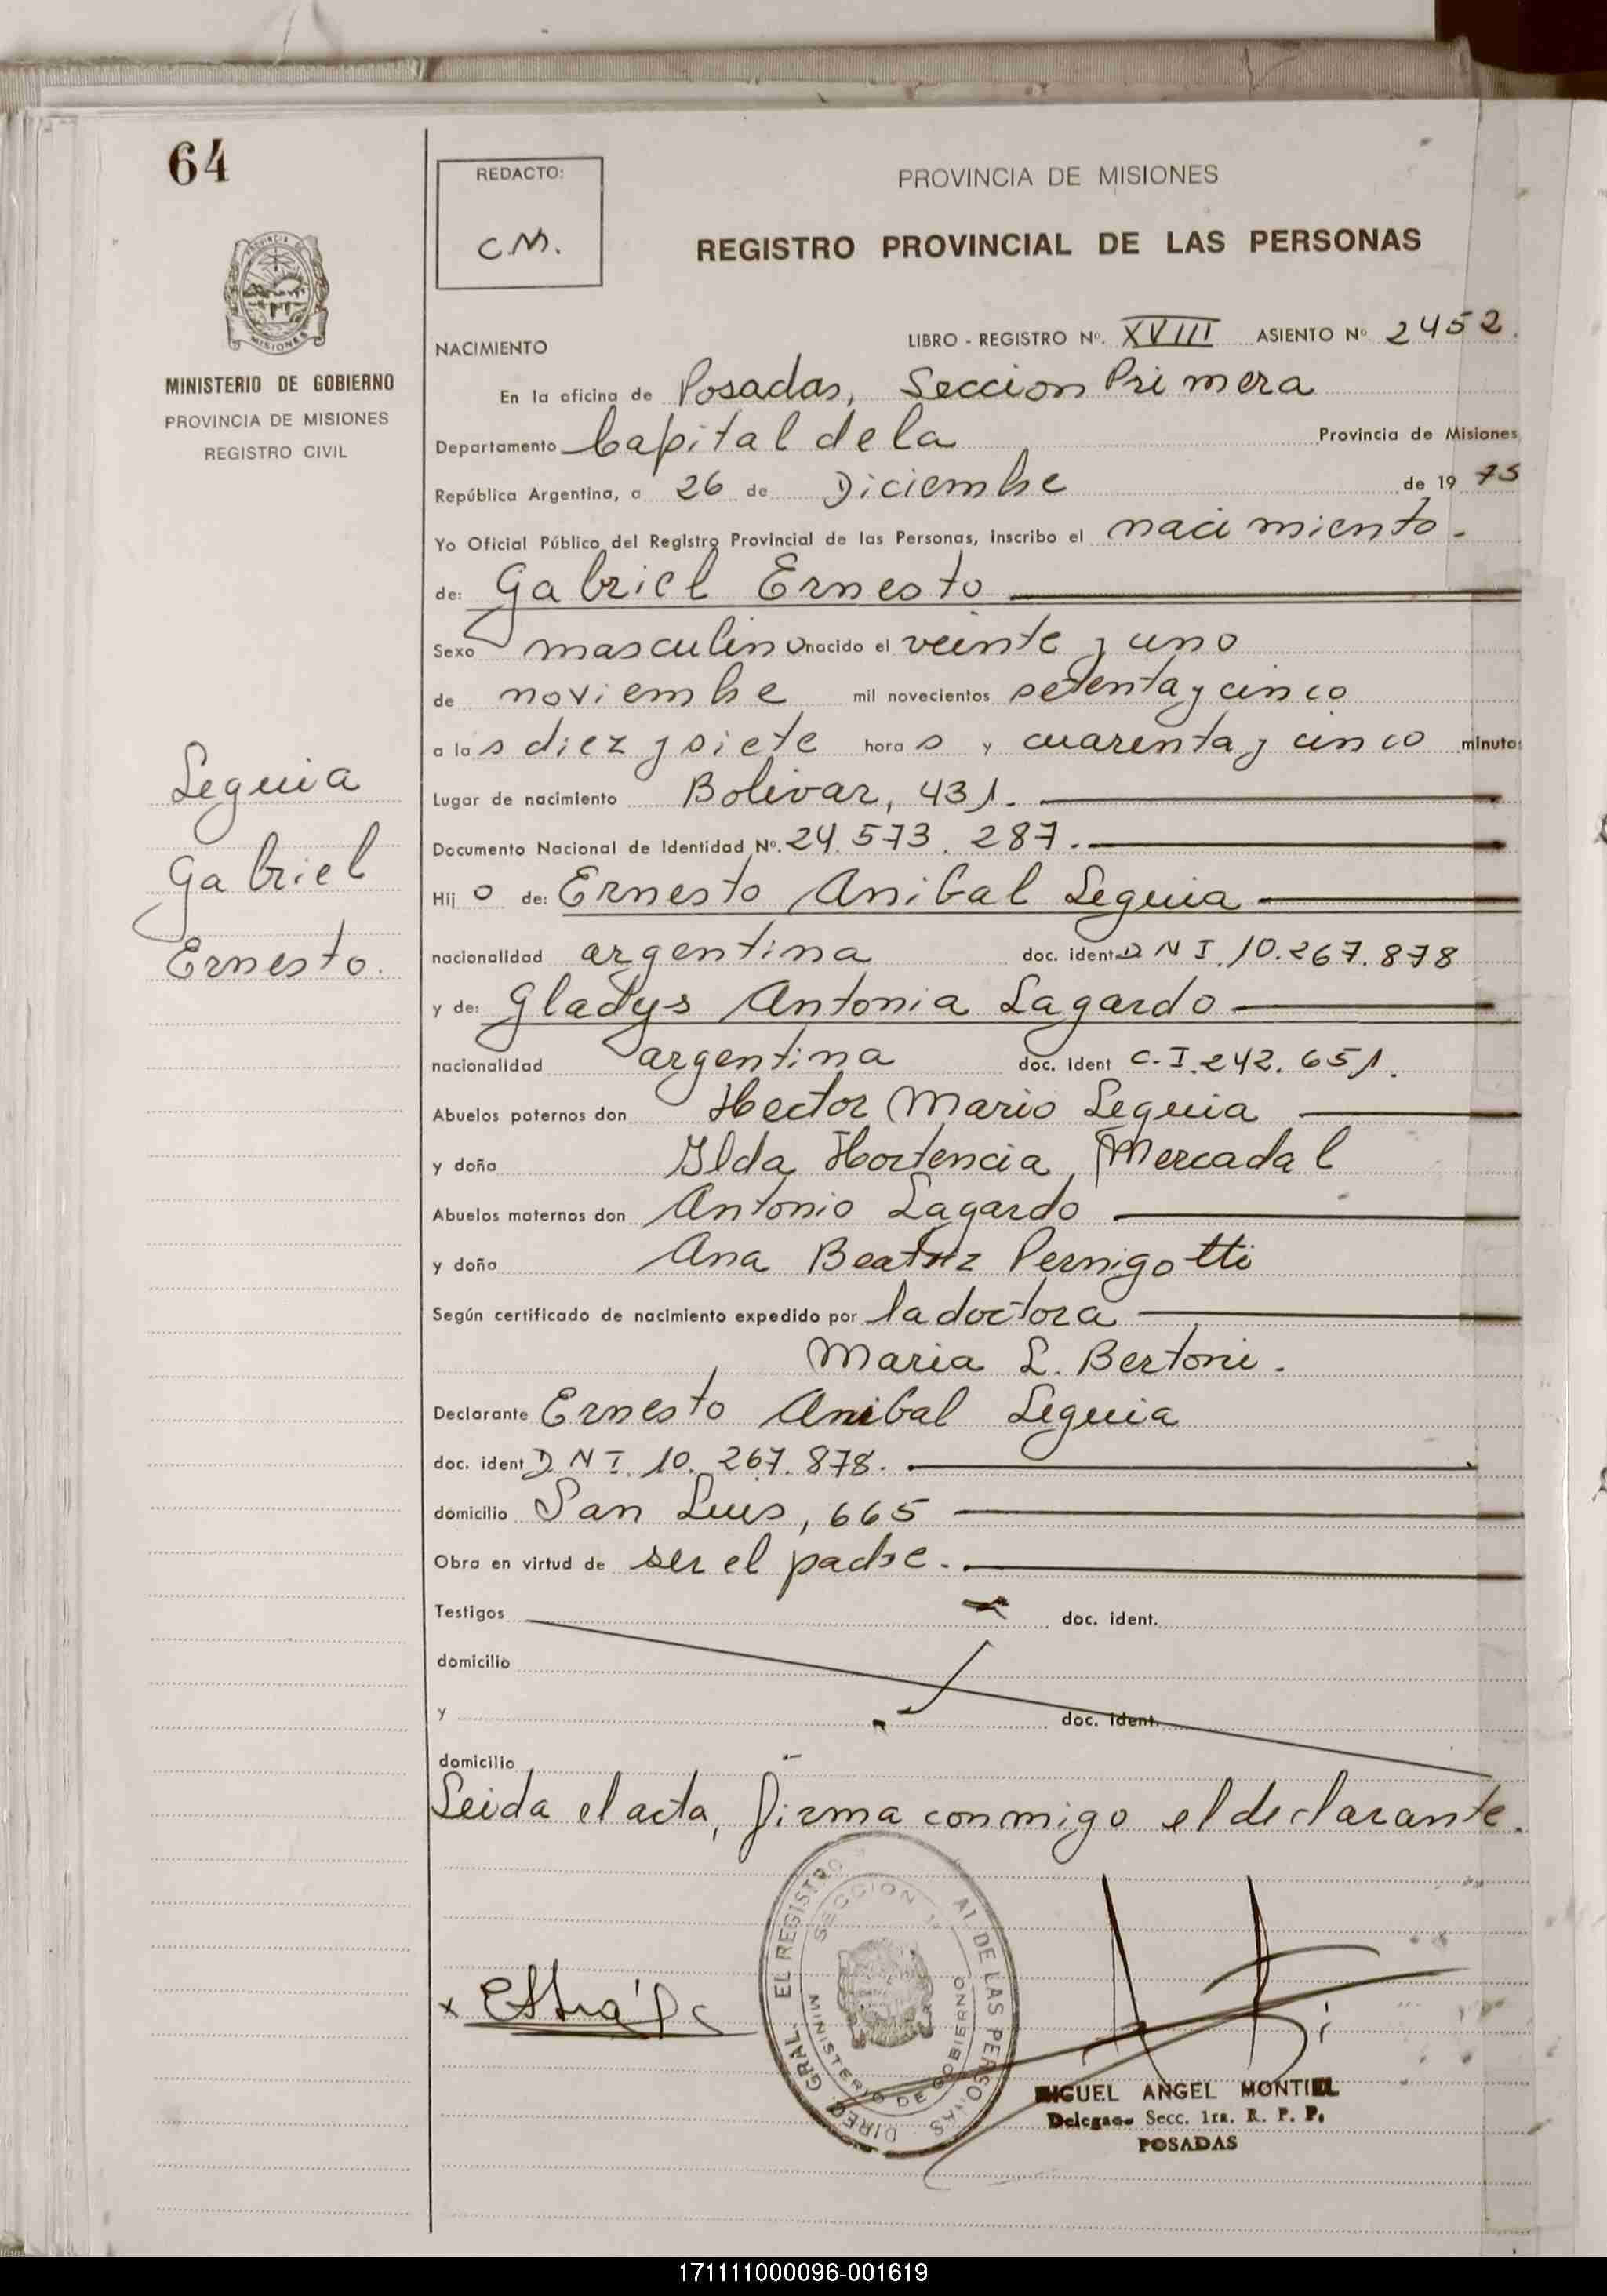 64
REDACTO:
C.M.
PROVINCIA DE MISIONES
REGISTRO PROVINCIAL DE LAS PERSONAS
PROVINCIA DE
MISIONES
MINISTERIO DE GOBIERNO
PROVINCIA DE MISIONES
REGISTRO CIVIL
NACIMIENTO
LIBRO - REGISTRO Nº. XVIII ASIENTO Nº 2452.
En la oficina de Posadas, Seccion Primera
Departamento Capital de la Provincia de Misiones
República Argentina, a 26 de Diciembre de 19 75
Yo Oficial Público del Registro Provincial de las Personas, inscribo el nacimiento.
de: Gabriel Ernesto
Sexo masculino nacido el veinte y uno
de noviembre mil novecientos setenta y cinco
a las diez y siete horas y cuarenta y cinco minutos
Lugar de nacimiento Bolivar, 431.
Documento Nacional de Identidad Nº. 24.573.287.
Hij o de: Ernesto Anibal Leguia
nacionalidad argentina doc. ident D N I. 10.267.878
y de: Gladys Antonia Lagardo
nacionalidad argentina doc. ident C.I. 242.651.
Abuelos paternos don Hector Mario Leguia
y doña Ilda Hortencia Mercadal
Abuelos maternos don Antonio Lagardo
y doña Ana Beatriz Pernigotti
Según certificado de nacimiento expedido por la doctora
Maria L. Bertoni.
Declarante Ernesto Anibal Leguia
doc. ident D N I. 10.267.878.
domicilio San Luis, 665
Obra en virtud de ser el padre.
Testigos doc. ident.
domicilio
y doc. ident.
domicilio
Leida el acta, firma conmigo el declarante.
Leguia
Gabriel
Ernesto.
DIREC. GRAL. EL REGISTRO AL DE LAS PERSONAS
SECCION 1ª
MINISTERIO DE GOBIERNO
MIGUEL ANGEL MONTIEL
Delegado Secc. 1ra. R. P. P.
POSADAS
171111000096-001619